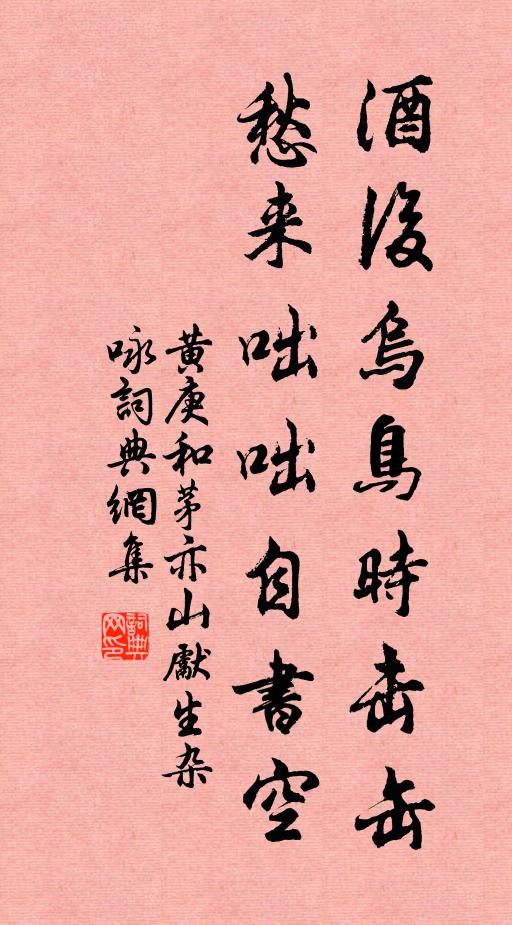 酒後烏鳥時击缶
愁来咄咄自書空
黄庚和茅亦山獻生杂
咏詞典網集
詞典
网印